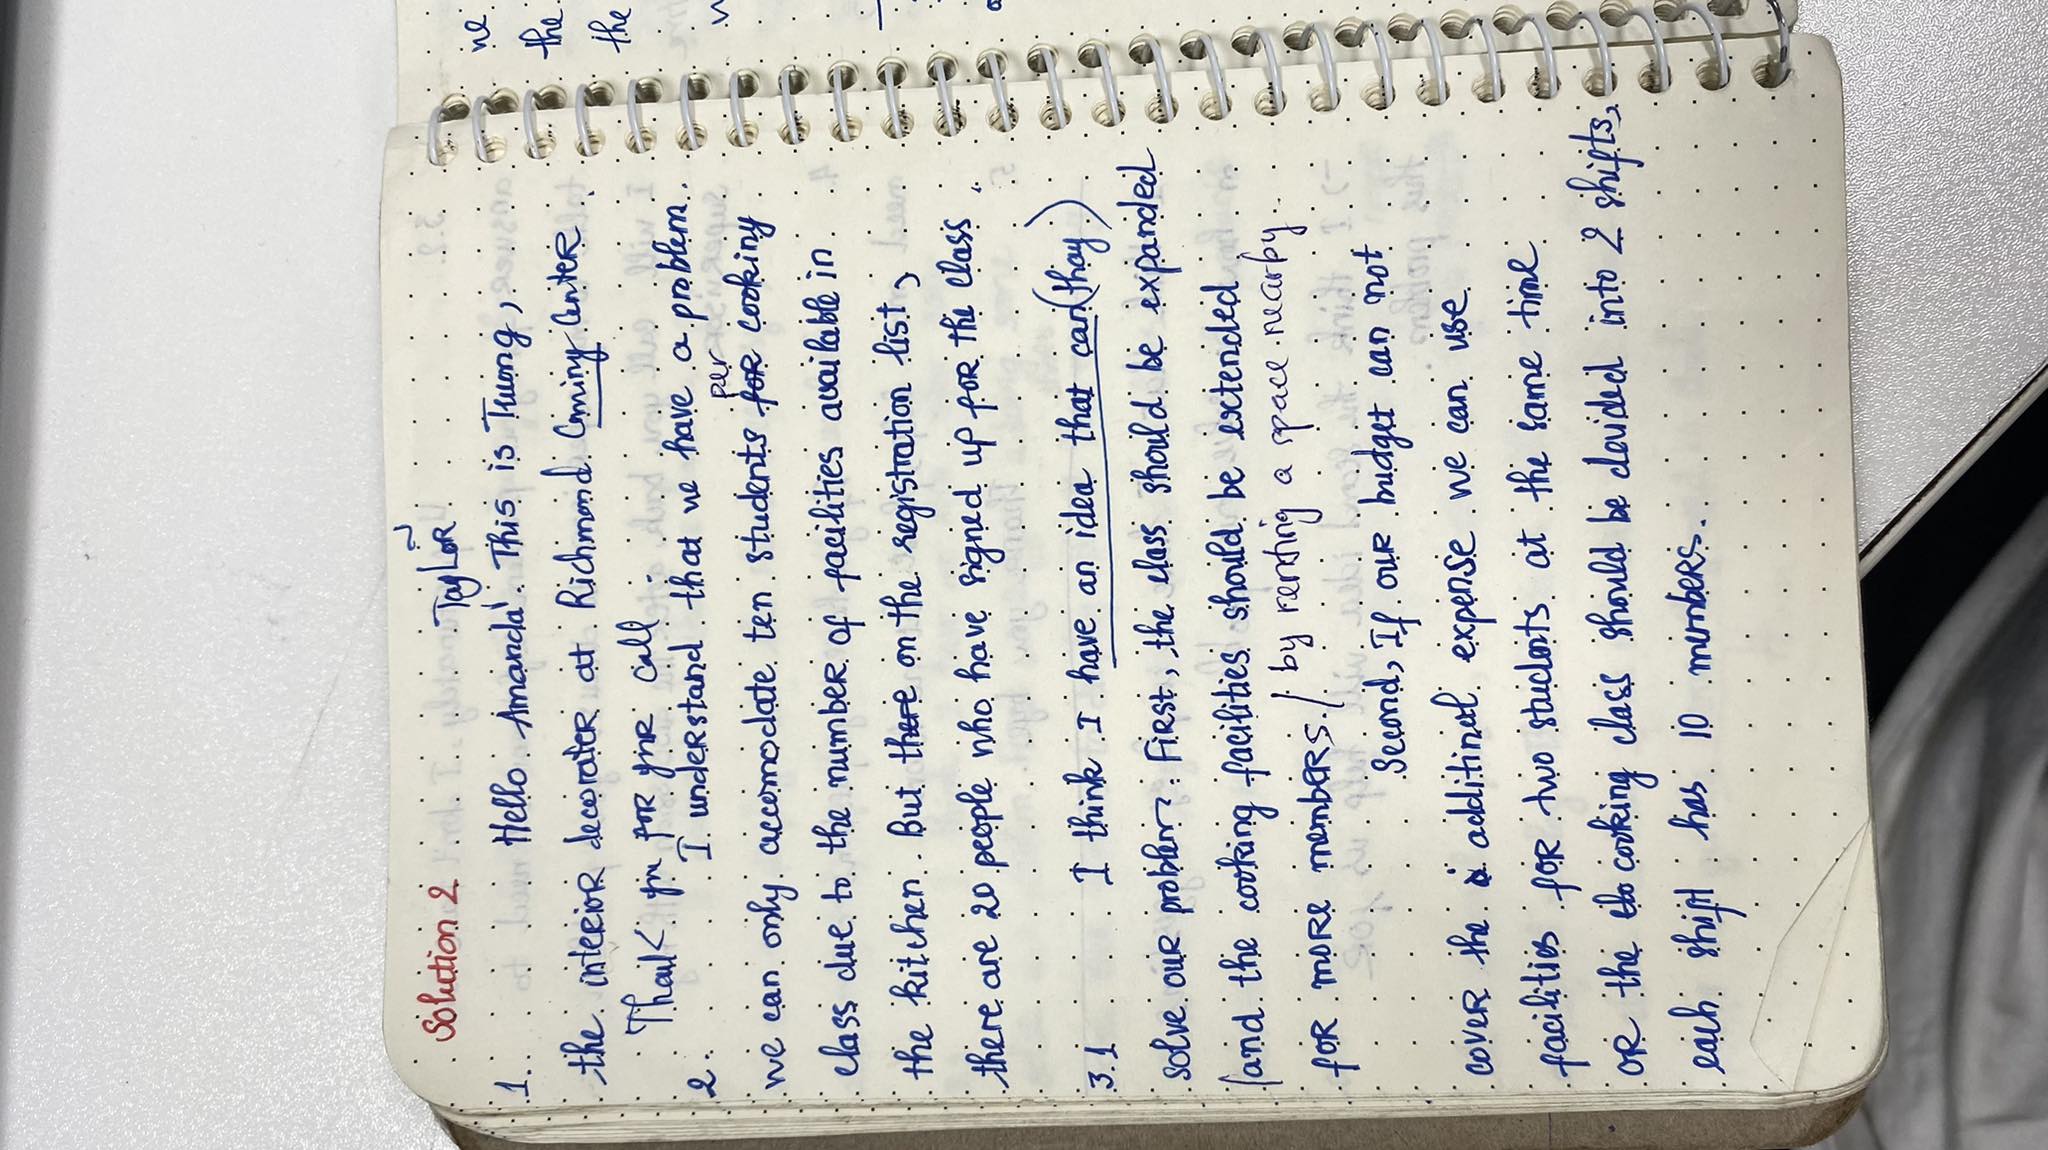 Solution 2
TayLoR
1. Hello Amanda! This is Truong,
the interior decorater at Richmond Coming Center.
Thank you for your call.
2. I understand that we have a problem.
per
we can only accomodate ten students for cooking
class due to the number of facilities available in
the kitchen. But there on the registration list,
there are 20 people who have signed up for the class.
3.1 I think I have an idea that can (thay)
solve our problem. First, the class should be expanded
(and the cooking facilities should be extended
for more members./ by renting a space nearby.
Second, If our budget can not
cover the additinal expense we can use
facilities for two students at the same time
or the cooking class should be devided into 2 shifts,
each shift has 10 members.
ne
the
the